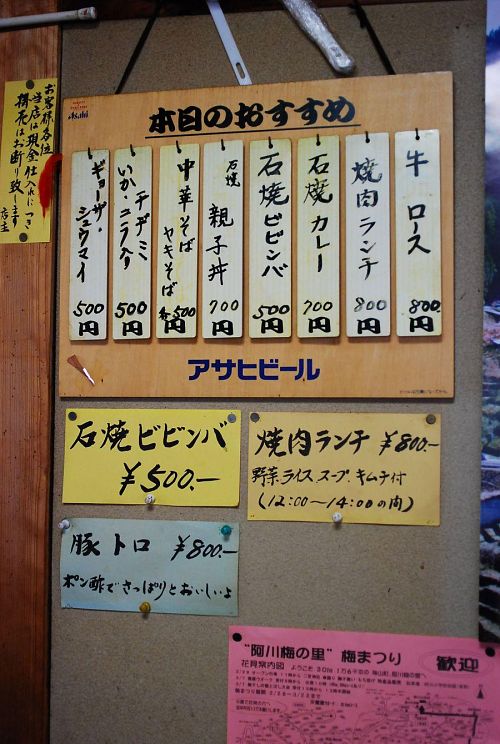 お客様各位
当店は現金仕入れにつき
掛売はお断り致します
店主
Asahi
本日のおすすめ
牛ロース
800円
焼肉ランチ
800円
石焼カレー
700円
石焼ビビンバ
500円
石焼
親子丼
700円
中華そば
ヤキそば
各500円
チヂミ
いか、ニラ入り
500円
ギョーザ、
シュウマイ
500円
アサヒビール
石焼ビビンバ
¥500.-
焼肉ランチ ¥800.-
野菜、ライス、スープ、キムチ付
(12:00〜14:00の間)
豚トロ ¥800.-
ポン酢でさっぱりとおいしいよ
"阿川梅の里"梅まつり
歓迎
花見案内図